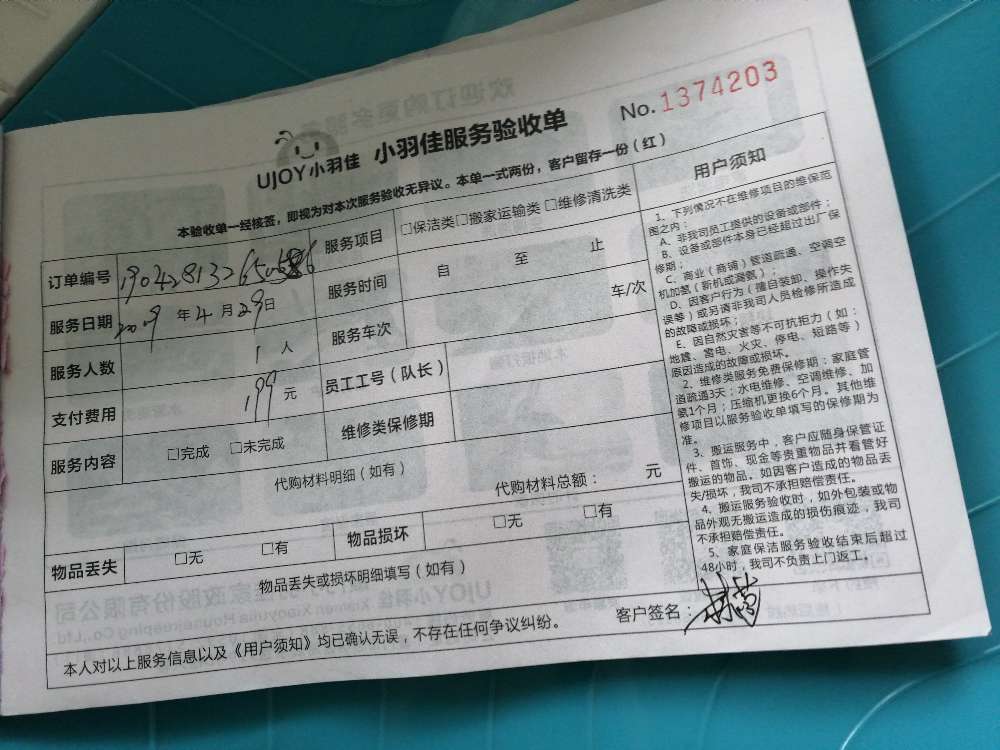 No. 1374203
UJOY小羽佳 小羽佳服务验收单
本验收单一经核签，即视为对本次服务验收无异议。本单一式两份，客户留存一份（红）
订单编号
服务项目 □保洁类□搬家运输类 □维修清洗类
服务日期 2019 年 4 月 29 日
服务时间 自 至 止
服务人数 1 人
服务车次 车/次
支付费用 199 元
员工工号（队长）
服务内容 □完成 □未完成
维修类保修期
代购材料明细（如有）
代购材料总额： 元
物品丢失 □无 □有
物品损坏 □无 □有
物品丢失或损坏明细填写（如有）
本人对以上服务信息以及《用户须知》均已确认无误，不存在任何争议纠纷。
客户签名：
用户须知
1、下列情况不在维修项目的维保范
围之内：
A、非我司员工提供的设备或部件；
B、设备或部件本身已经超过出厂保
修期；
C、商业（商铺）管道疏通、空调空
机加氨（新机或漏氨）；
D、因客户行为（擅自装卸、操作失
误等）或另请非我司人员检修所造成
的故障或损坏；
E、因自然灾害等不可抗拒力（如：
地震、雷电、火灾、停电、短路等）
原因造成的故障或损坏。
2、维修类服务免费保修期：家庭管
道疏通3天；水电维修、空调维修、加
氨1个月；压缩机更换6个月。其他维
修项目以服务验收单填写的保修期为
准。
3、搬运服务中，客户应随身保管证
件、首饰、现金等贵重物品并看管好
搬运的物品。如因客户造成的物品丢
失/损坏，我司不承担赔偿责任。
4、搬运服务验收时，如外包装或物
品外观无搬运造成的损伤痕迹，我司
不承担赔偿责任。
5、家庭保洁服务验收结束后超过
48小时，我司不负责上门返工。